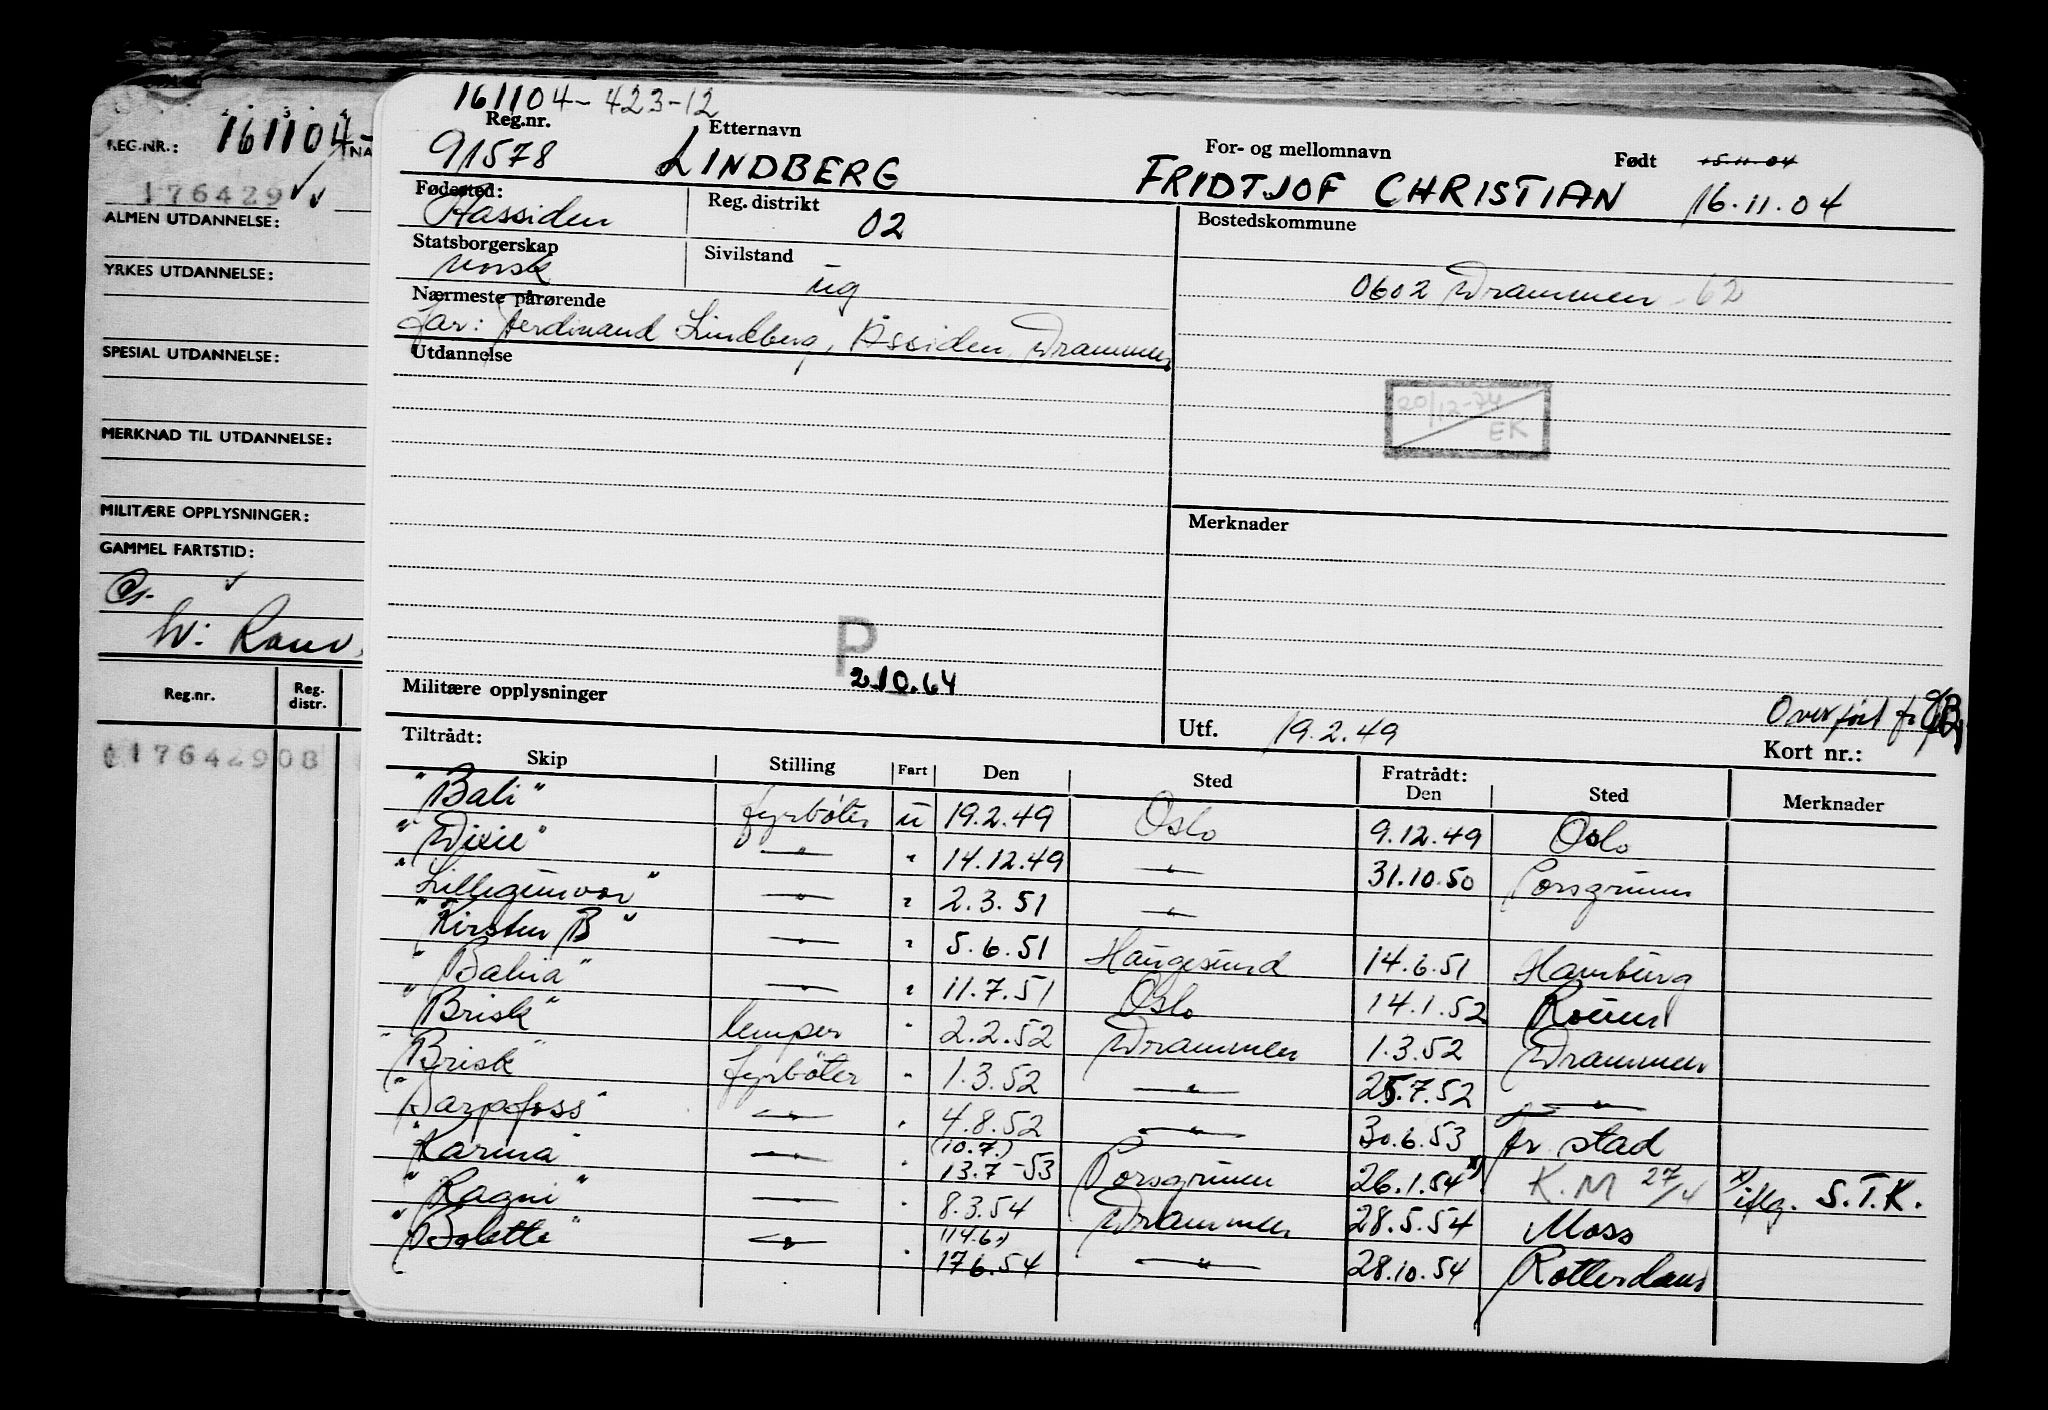 161104
REG.NR.: 161104- NA
176429
ALMEN UTDANNELSE:
YRKES UTDANNELSE:
SPESIAL UTDANNELSE:
MERKNAD TIL UTDANNELSE:
MILITÆRE OPPLYSNINGER:
GAMMEL FARTSTID:
Reg.nr. Reg. distr.
176429 08
161104-423-12
Reg.nr. Etternavn For- og mellomnavn Født 15.11.04
91578 LINDBERG FRIDTJOF CHRISTIAN 16.11.04
Fødested: Reg. distrikt Bostedskommune
Åassiden 02
Statsborgerskap Sivilstand
norsk ug 0602 Drammen -62
Nærmeste pårørende
far: Ferdinand Lindberg, Åssiden, Drammen
Utdannelse
20/12-74
EK
Merknader
P
2.10.64
Militære opplysninger
Utf. 19.2.49 Overført fr.
Kort nr.:
Tiltrådt: Fratrådt:
Skip Stilling Fart Den Sted Den Sted Merknader
"Bali" fyrbøter u 19.2.49 Oslo 9.12.49 Oslo
"Dixie" " " 14.12.49 " 31.10.50 Porsgrunn
"Lillegunvor" " " 2.3.51 "
"Kirsten B" " " 5.6.51 Haugesund 14.6.51 Hamburg
"Bahia" " " 11.7.51 Oslo 14.1.52 Rouen
"Brisk" lemper " 2.2.52 Drammen 1.3.52 Drammen
"Brisk" fyrbøter " 1.3.52 " 25.7.52 "
"Sarpfoss" " " 4.8.52 " 30.6.53 fr. stad
"Karina" " " (10.7.) 13.7-53 Porsgrunn 26.1.54 x) K.M 27/4 x) iflg. S.T.K.
"Ragni" " " 8.3.54 Drammen 28.5.54 Moss
"Bolette" " " (14.6.) 17.6.54 " 28.10.54 Rotterdam